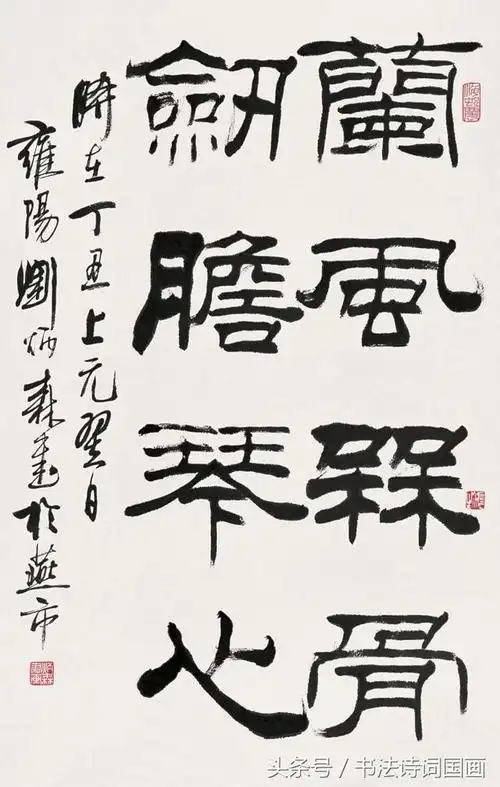 蘭風槑骨
劒膽琴心
時在丁丑上元翌日
雍陽劉炳森書於燕市
头条号 / 书法诗词国画